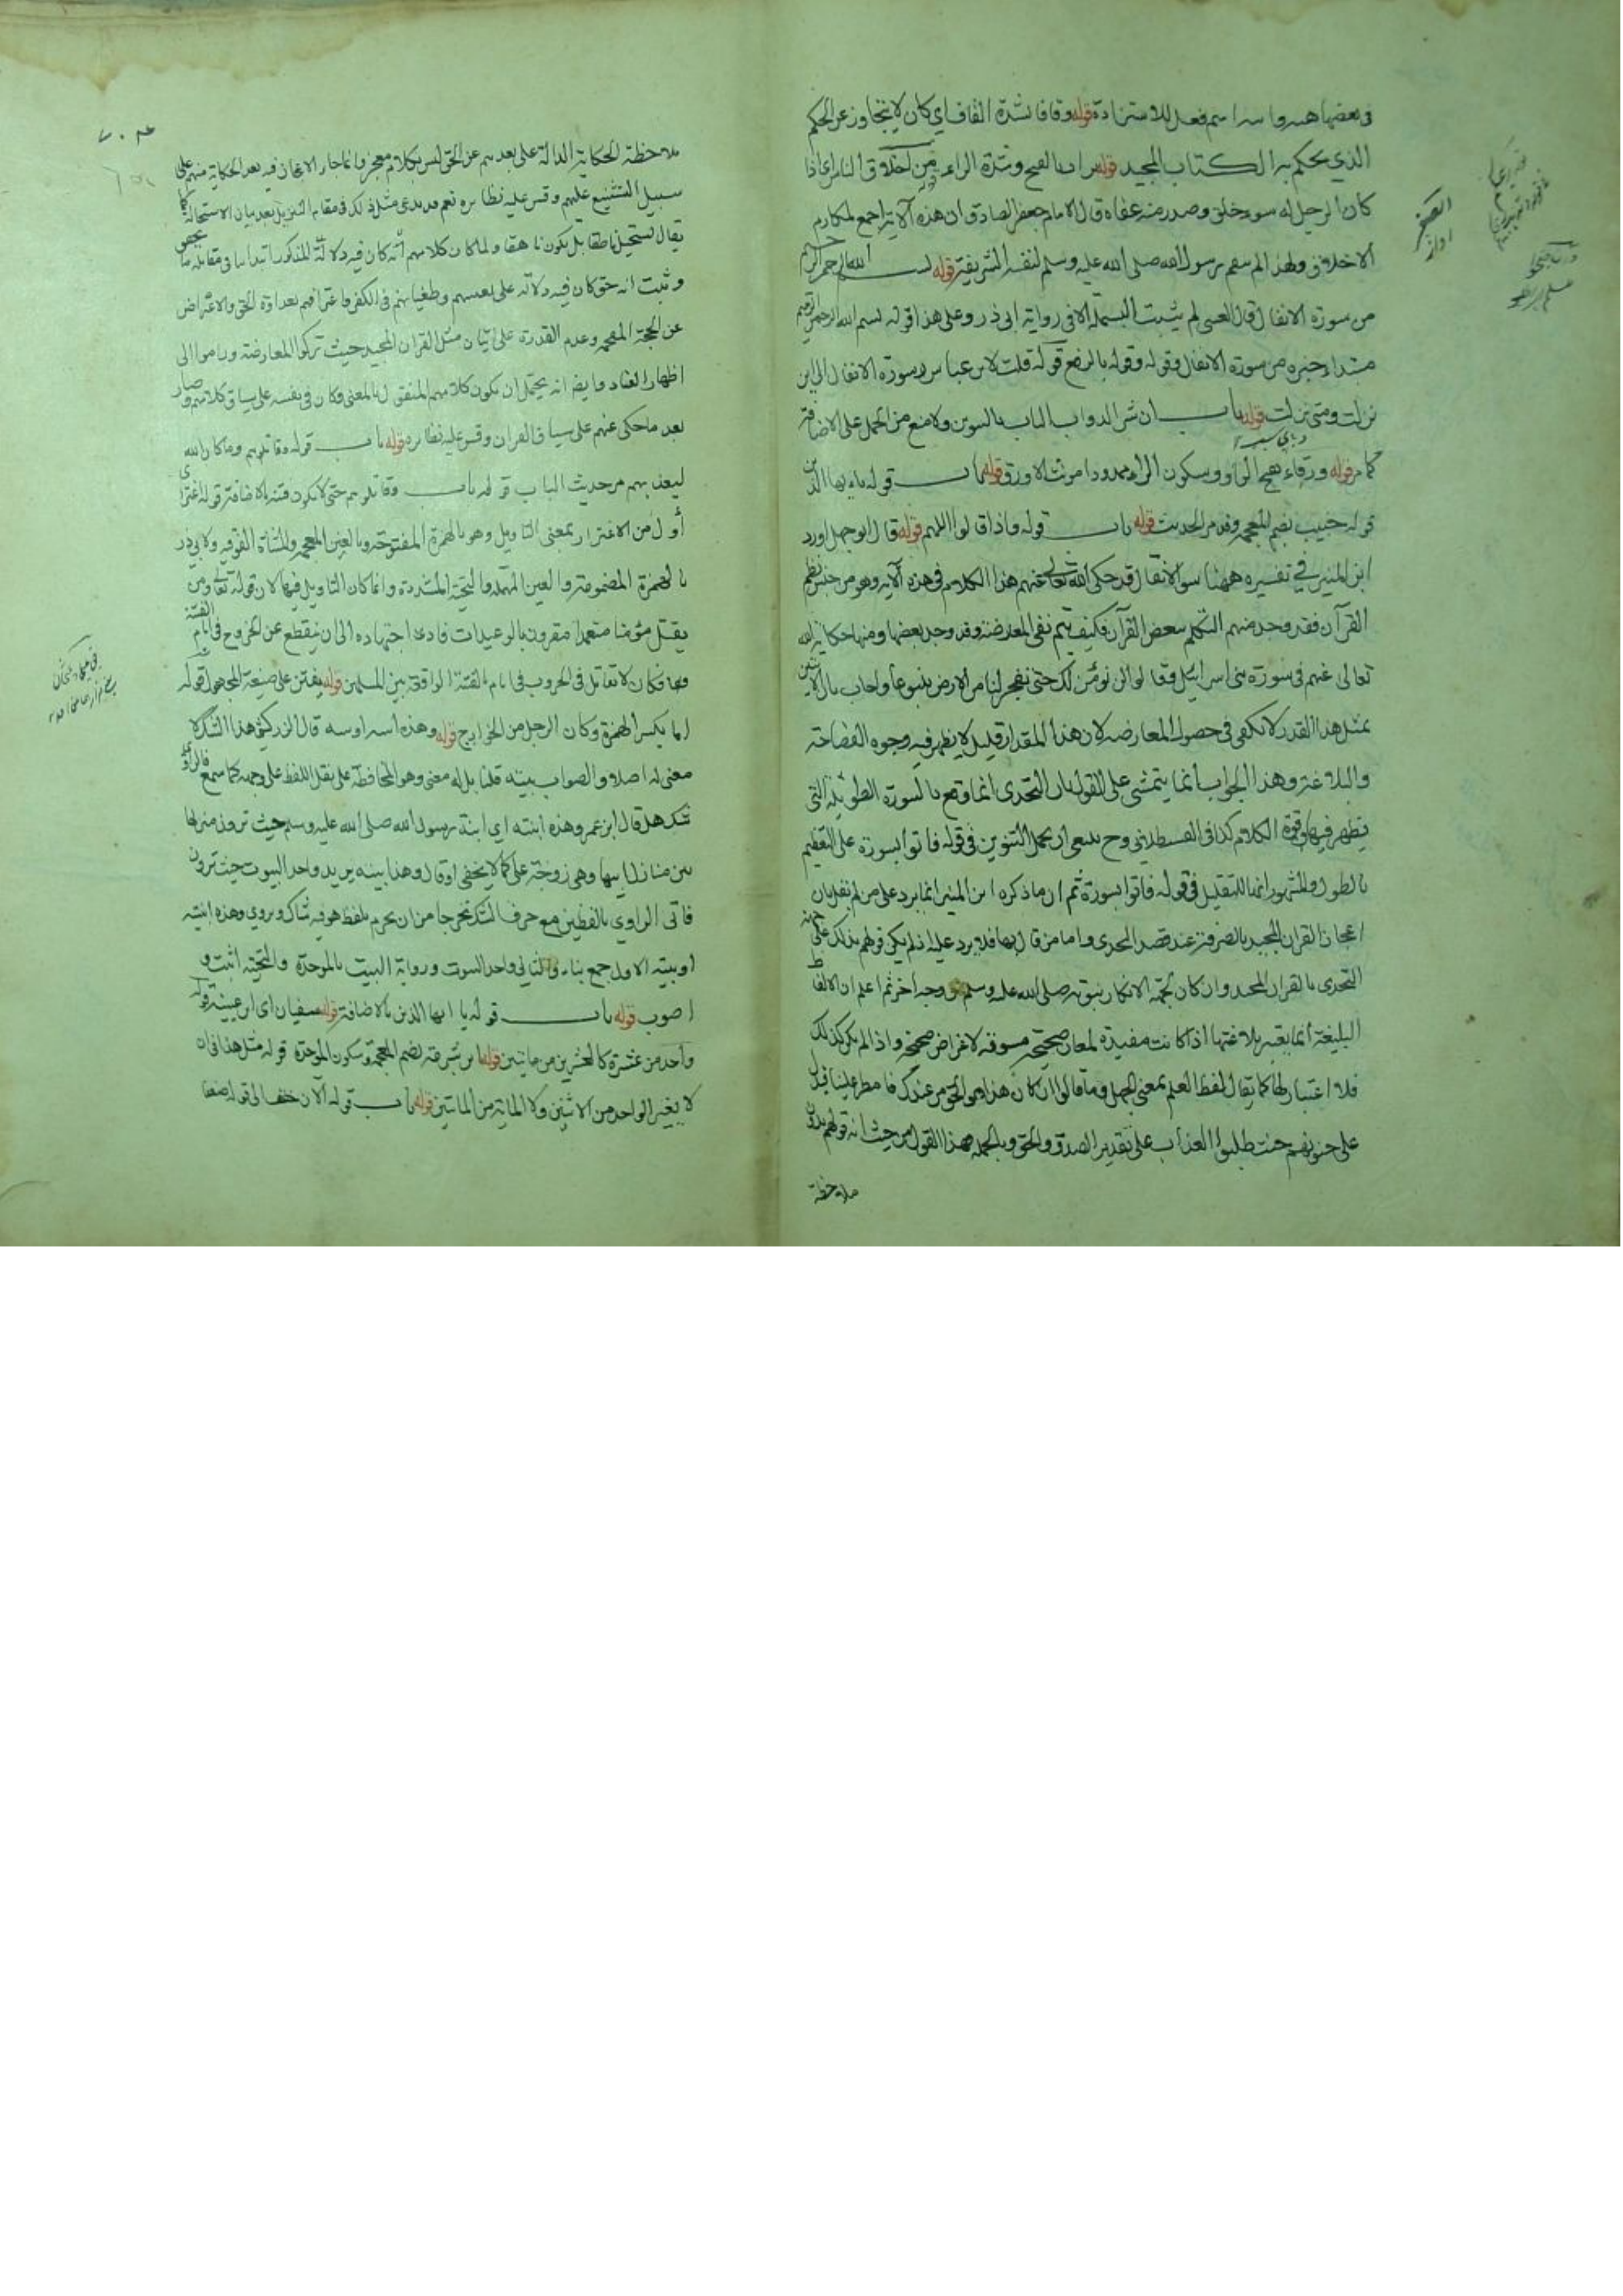 في بعضها هيه واسه اسم فعل للاستزادة قوله وقافا بشدة القاف اي كان لا يتجاوز عن الحكم
الذي يحكم به الكتاب المجيد قوله براد بالفتح وشدة الراء قوله من اخلاق الناس اي اذا
كان الرجل له سوء خلق وصدر منه عفاه قال الامام جعفر الصادق ان هذه الآية اجمع لمكارم
الاخلاق ولهذا لم ينتقم رسول الله صلى الله عليه وسلم لنفسه الشريفة قوله بسم الله الرحمن الرحيم
من سورة الانفال قال العيني لم يثبت البسملة الا في رواية ابي ذر وعلى هذا قوله بسم الله الرحمن الرحيم
مبتداء خبره من سورة الانفال وقوله وقوله بالرفع قوله قلت لابن عباس سورة الانفال اي اين
نزلت ومتى نزلت قوله باب ان شر الدواب الباب بالتنوين ولا منع من الحمل على الاضافة
كما مر قوله ورقاء بفتح الواو وسكون الراء ممدودا مونث الاورق قوله باب قوله يا ايها الذين
قوله خبيب بضم المعجمة وقد مر الحديث قوله باب قوله واذ قالوا اللهم قوله قال ابو جهل اورد
ابن المنير في تفسيره ههنا سوالا فقال قد حكى الله تعالى عنهم هذا الكلام في هذه الآية وهو من جنس نظم
القرآن فقد وجد منهم التكلم ببعض القرآن فكيف يتم نفي المعارضة وقد وجد بعضها ومنها حكاية الله
تعالى عنهم في سورة بني اسرائيل وقالوا لن نؤمن لك حتى تفجر لنا من الارض ينبوعا واجاب بان الاتيان
بمثل هذا القدر لا يكفي في حصول المعارضة لان هذا المقدار قليل لا يظهر فيه وجوه الفصاحة
والبلاغة وهذا الجواب انما يتمشى على القول بان التحدي انما وقع بالسورة الطويلة التي
يظهر فيها قوة الكلام كذا في القسطلاني وح ينبغي ان يحمل التنوين في قوله فاتوا بسورة على التعظيم
بالطول والمشهور انها للتقليل في قوله فاتوا بسورة ثم ان ما ذكره ابن المنير انما يرد على من لم يقل بان
اعجاز القران المجيد بالصرفة عند قصد التحدي واما من قال بها فلا يرد عليه اذ لم يكن قولهم بذلك على جهة
التحدي بالقران المجيد وان كان بجهة الانكار بنبوته صلى الله عليه وسلم ووجه آخر ثم اعلم ان الالفاظ
البليغة انما يعتبر بلاغتها اذا كانت مفيدة لمعان صحيحة مسوقة لاغراض صحيحة واذا لم يكن كذلك
فلا اعتبار لها كما يقال لفظ العلم بمعنى الجهل وما قالوا ان كان هذا هو الحق من عندك فامطر علينا فدل
على جنونهم حيث طلبوا العذاب على تقدير الصدق والحق وبالجملة فهذا القول من حيث انه قولهم بدون
ملاحظة
ملاحظة الحكاية الدالة على بعدهم عن الحق ليس بكلام معجز وانما جاء الاعجاز فيه بعد الحكاية منهم على
سبيل التشنيع عليهم وقس عليه نظائره نعم قد يدعى مثل ذلك في مقام التنزيل بعد بيان الاستحالة كما
يقال يستحيل ناطقا بل يكون ناهقا ولما كان كلامهم انه كان فيه دلالة
وثبت انه حق كان فيه دلالة على بعدهم وطغيانهم في الكفر واغترافهم بعداوة الحق والاعراض
عن الحجة المفحمة وعدم القدرة على اتيان مثل القران المجيد حيث تركوا المعارضة وراموا الى
اظهار العناد وايضا انه يحتمل ان يكون كلامهم المنقول بالمعنى وكان في نفسه على سياق كلامهم وصار
بعد ما حكى عنهم على سياق القران وقس عليه نظائره قوله باب قوله وقاتلوهم وما كان الله
ليعذبهم مر حديث الباب قوله باب وقاتلوهم حتى لا تكون فتنة بالاضافة قوله اغترا
أول من الاغترار بمعنى التاويل وهو بالهمزة المفتوحة وبالغين المعجمة والمثناة الفوقية ولابي ذر
بالهمزة المضمومة والعين المهملة والتحتية المشددة وانما كان التاويل فيها لان قوله تعالى ومن
يقتل مؤمنا متعمدا مقرون بالوعيدات فادى اجتهاده الى ان ينقطع عن الخروج في ايام الفتنة
وقها فكان لا تقاتل في الحروب في ايام الفتنة الواقعة بين المسلمين قوله يفتن على صيغة المجهول قوله
اما بكسر الهمزة وكان الرجل من الخوارج قوله وهذه ابنته او بيته قال الزركشي هذا الشك لا
معنى له اصلا والصواب بيته قلنا بل له معنى وهو المحافظة على نقل اللفظ على وجهه كما سمع فالراوي
شك هل قال ابن عمر وهذه ابنته اي ابنة رسول الله صلى الله عليه وسلم حيث ترون منزلها
بين منازل ابيها وهي زوجة علي كما لا يخفى او قال وهذا بيته يريد واحد البيوت حيث ترون
فاتى الراوي باللفظين مع حرف الشك تحرجا من ان يجزم بلفظ هو فيه شاك ويروي وهذه ابنيته
او بيته الاول جمع بناء والثاني واحد البيوت ورواية البيت بالموحدة والتحتية اثبت و
اصوب قوله باب قوله يا ايها الذين بالاضافة قوله سفيان اي ابن عيينة قوله
واحد من عشرة كالعشرين من مايتين قوله ابن شبرمة بضم المعجمة وسكون الموحدة قوله مثل هذا فان
لا يغير الواحد من الاثنين ولا المائة من المائتين قوله باب قوله الآن خفف الى قوله ضعفا